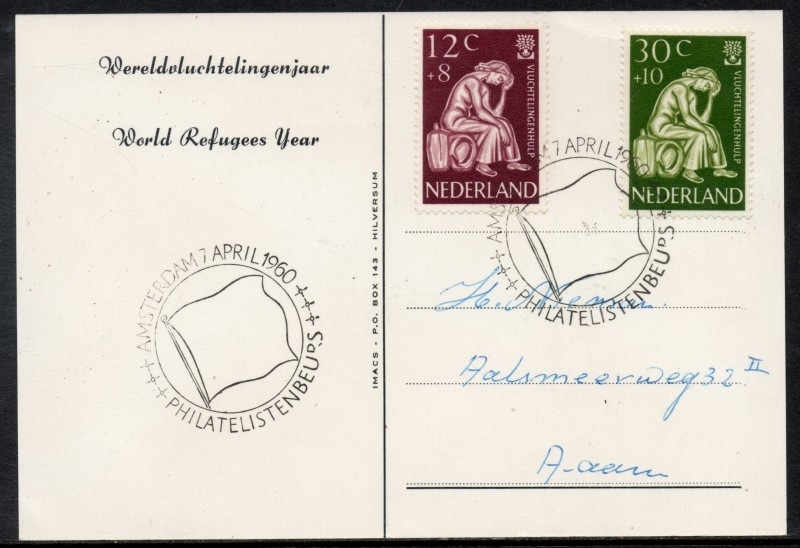 Wereldvluchtelingenjaar
World Refugees Year
AMSTERDAM 7 APRIL 1960
PHILATELISTENBEURS
IMACS - P.O. BOX 143 - HILVERSUM
12 C
+ 8
VLUCHTELINGENHULP
NEDERLAND
30 C
+ 10
VLUCHTELINGENHULP
NEDERLAND
AMSTERDAM 7 APRIL 1960
PHILATELISTENBEURS
H.
Aalsmeerweg 32 II
A-dam